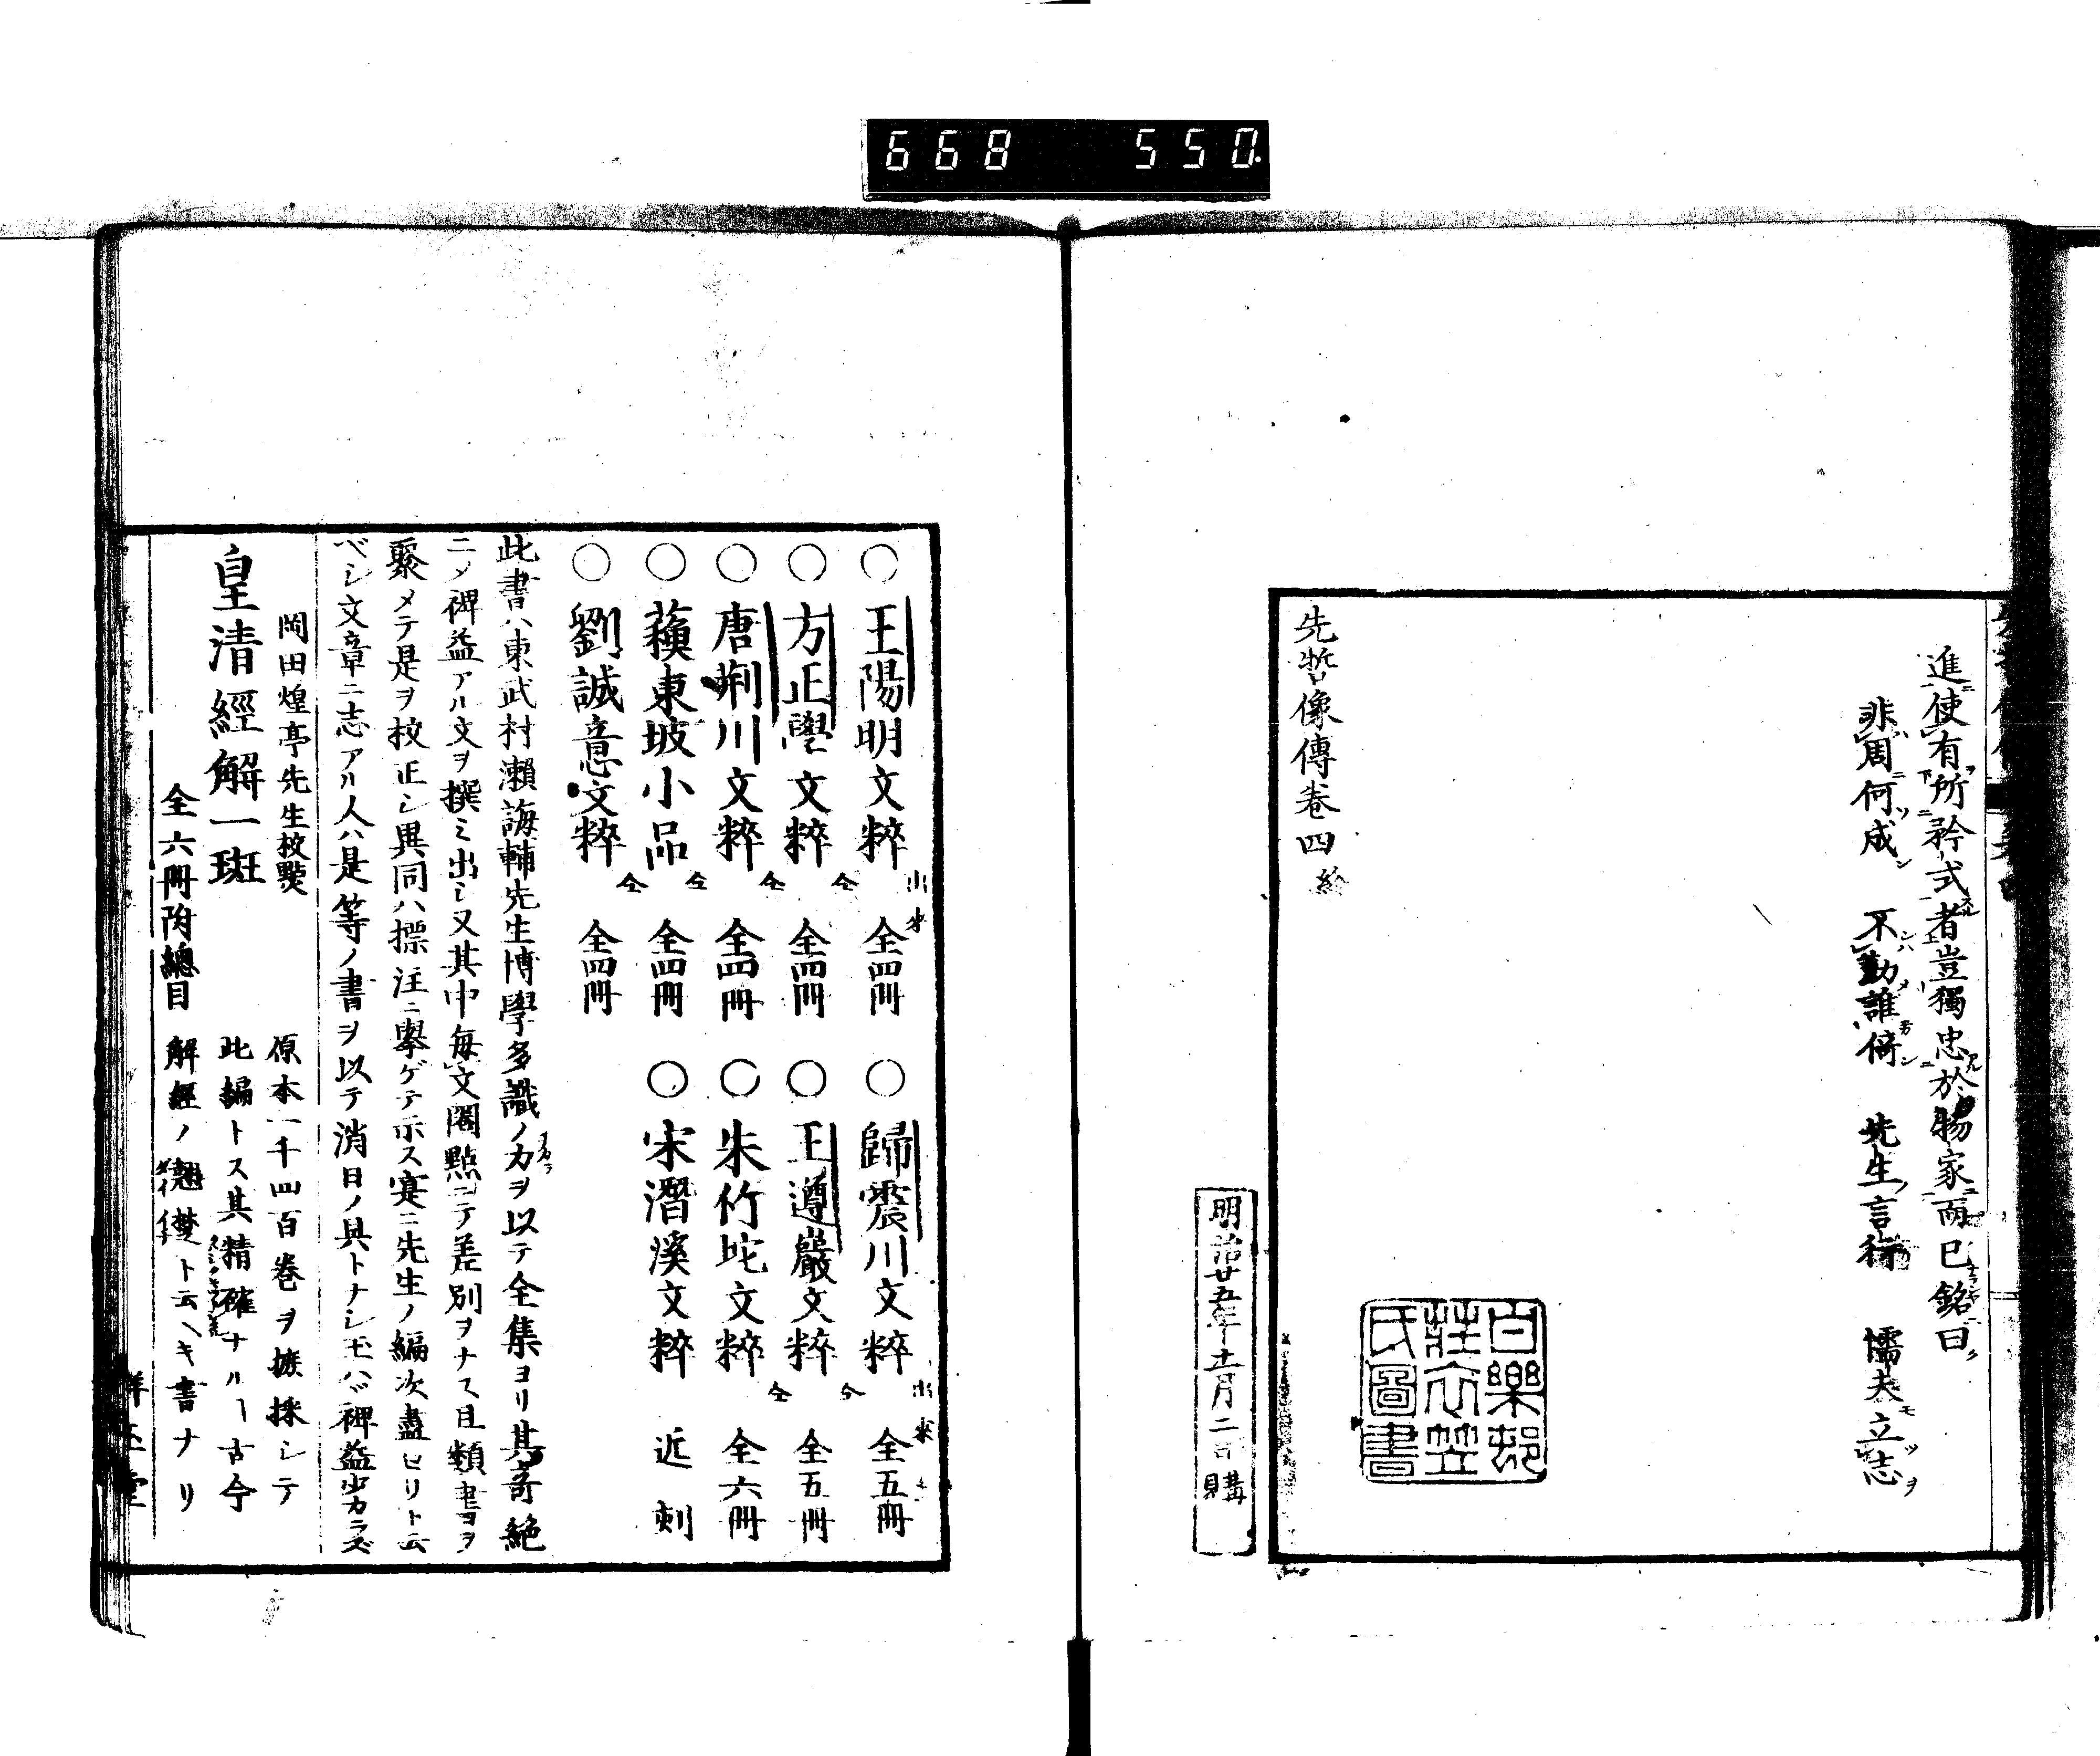 668 550.
進使有所矜式者豈獨忠於物家而已銘曰
非周何成 不勤誰倚 先生言行 懦夫立志
先哲像傳卷四終
白樂邨
莊衣笠
氏圖書
明治廿五年十一月二日購
○王陽明文粹 出来 全四冊 ○歸震川文粹 出来 全五冊
○方正學文粹 仝 全四冊 ○王遵巖文粹 仝 全五冊
○唐荊川文粹 仝 全四冊 ○朱竹垞文粹 仝 全六冊
○蘓東坡小品 仝 全四冊 ○宋潛溪文粹 近刻
○劉誠意文粹 仝 全四冊
此書ハ東武村瀨誨輔先生博學多識ノ力ヲ以テ全集ヨリ其竒絶
ニノ裨益アル文ヲ撰ミ出シ又其中毎文闊點ニテ差別ヲナス且類書ヲ
聚メテ是ヲ校正シ異同ハ標注ニ擧ゲテ示ス寔ニ先生ノ編次盡セリト云
ベシ文章ニ志アル人ハ是等ノ書ヲ以テ消日ノ具トナシ玉ハヾ裨益少カラズ
岡田煌亭先生校㸃
皇清經解一斑
全六冊附總目
原本一千四百巻ヲ摭採シテ
此編トス其精確ナルヿ古今
解經ノ翹楚ト云ヘキ書ナリ